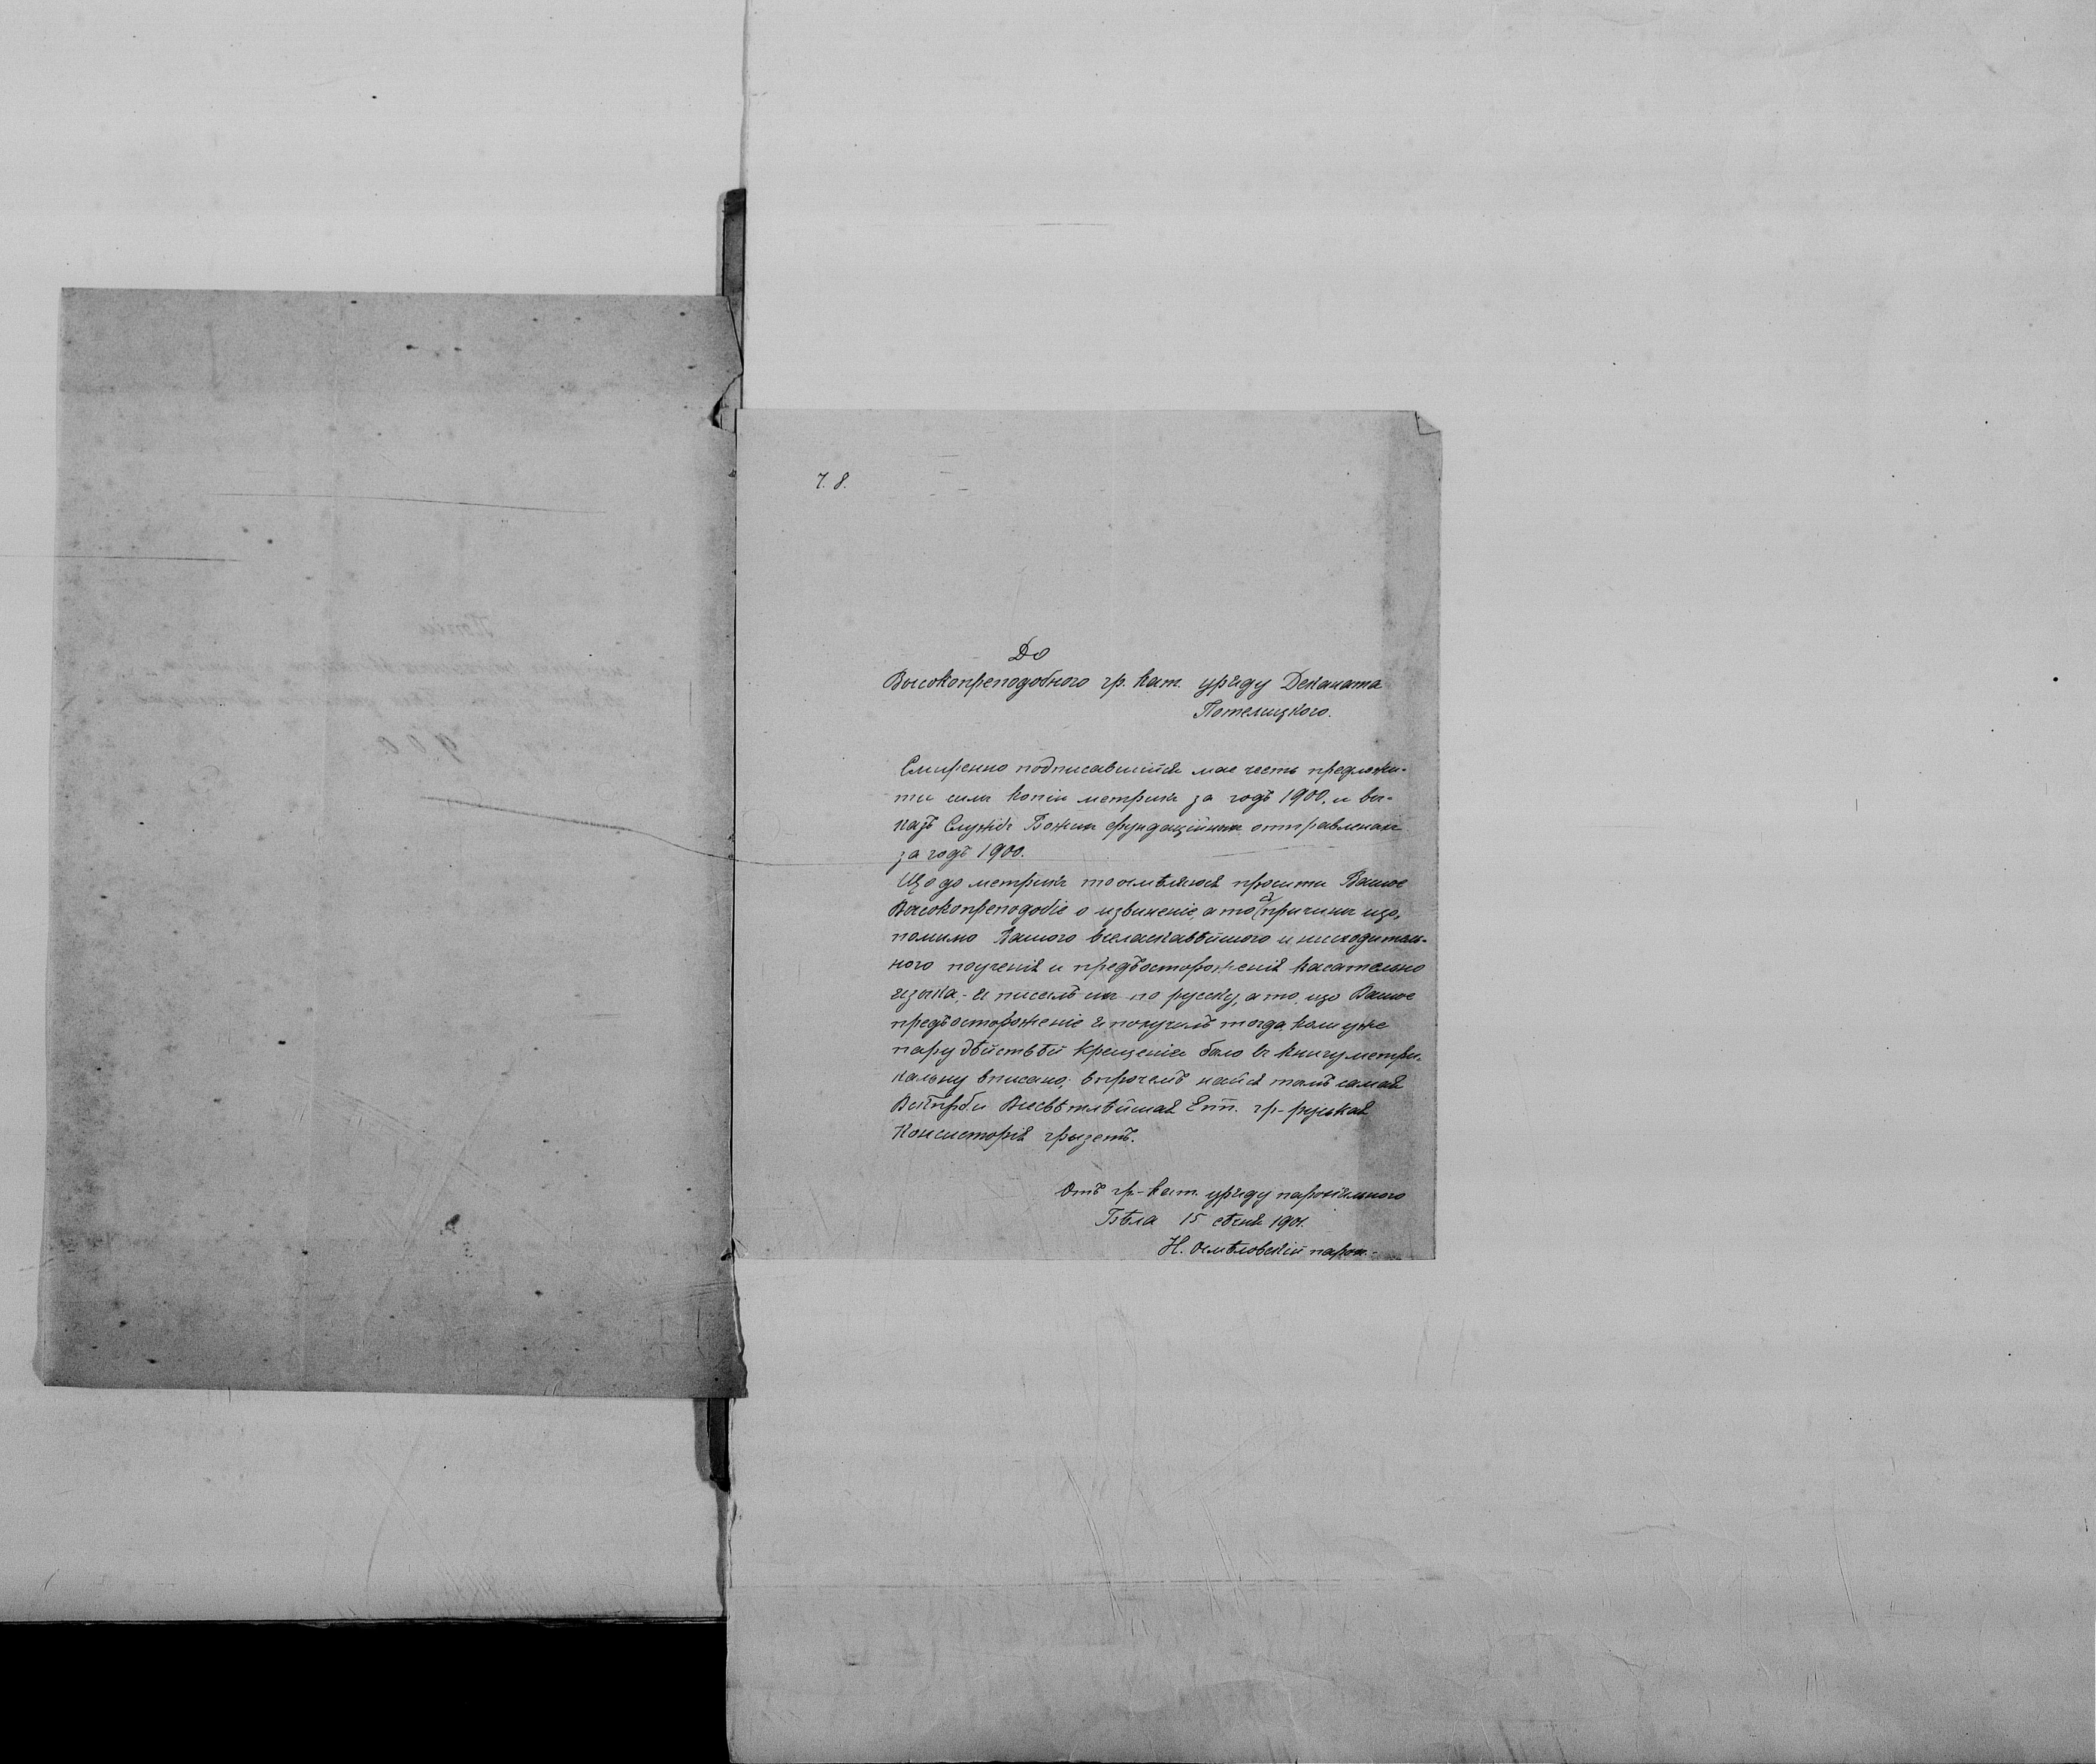 Ч. 8.
До
Высокопреподобного гр. кат. уряду Деканата
Потелицкого.
Смиренно подписавшійся мае честь предложи-
ти симъ копіи метрикъ за годъ 1900, и вы-
казъ Службъ Божихъ фундаційныхъ отправленыхъ
за годъ 1900.
Що до метрикъ то осмѣляюся просити Ваше
Высокопреподобіе о извиненіе, а то съ причины що,
помимо Вашого вселаскавѣйшого и снисходитель-
ного поученія и предъостороженія касательно
языка, - я писалъ ихъ по руску, а то, що Ваше
предъостороженіе я получилъ тогда, коли уже
пару дѣйствій крещенія было въ книгу метри-
кальну вписано, впрочемъ
Всесвѣтлѣйшая Еп. гр-руская
Консисторія
Отъ гр-кат. уряду парохіяльного
Бѣла 15 сѣчня 1901.
Н. Осмѣловскій парох-
Копіи
900